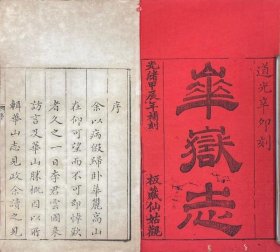 道光辛卯刻
華嶽志
光緒甲辰年補刻
板藏仙姑觀
序
余以病假歸卧華麓高山
在仰可望而不可卽悼歎
者久之一日李君雲圃來
訪言及華山勝概因以所
輯華山志見政余讀之見